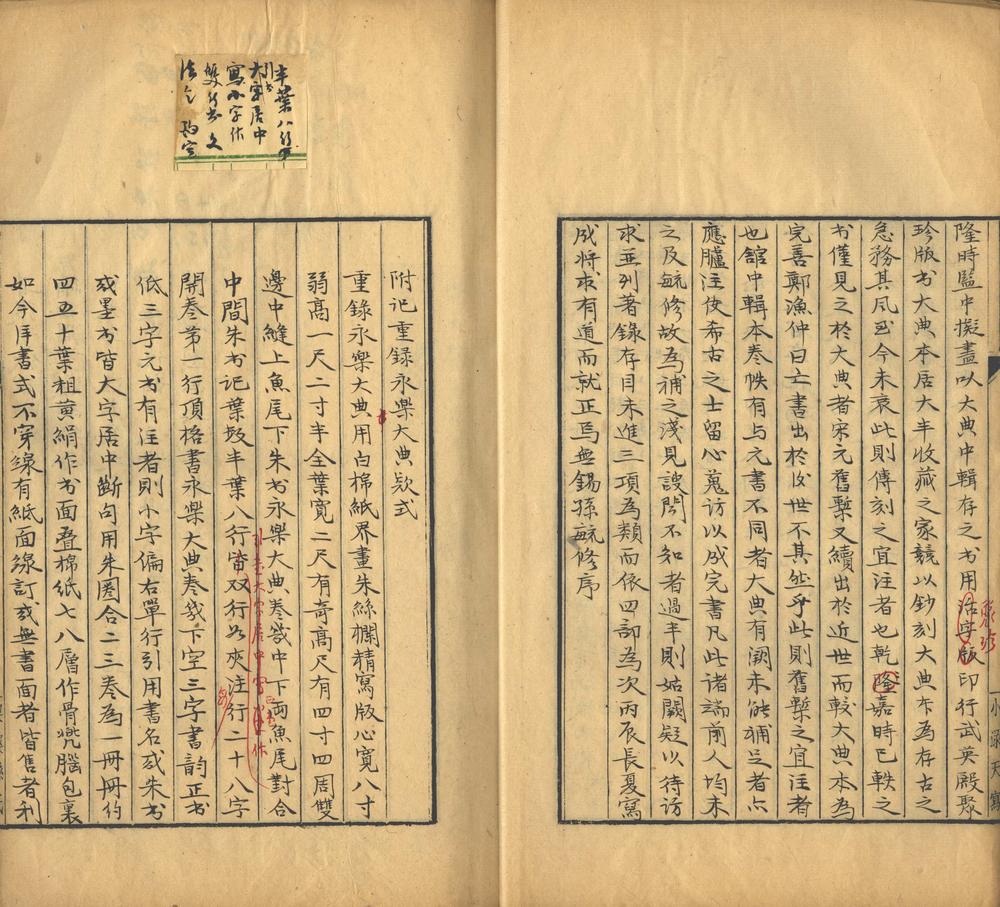 隆時監中擬盡以大典中輯存之书用活字版印行武英殿聚
珍版书大典本居大半收藏之家競以鈔刻大典本為存古之
急務其風至今未衰此則傳刻之宜注者也乾隆嘉時已軼之
书僅見之於大典者宋元舊槧又續出於近世而較大典本為
完善鄭漁仲曰亡書出於後世不其然乎此則舊槧之宜注者
也舘中輯本卷帙有与元書不同者大典有闕未能補足者亦
應臚注使希古之士留心蒐访以成完書凡此诸端前人均未
之及毓修故為補之淺見謏聞不知者過半則姑闕疑以待访
求並列著錄存目未進三項為類而依四部為次丙辰長夏寫
成将求有道而就正焉無錫孫毓修序
小淥天寫
半葉八行
大字居中
寫小字作
雙行
附记重録永樂大典欵式
重錄永樂大典用白棉紙界畫朱絲欄精寫版心寬八寸
弱高一尺二寸半全葉寬二尺有奇高尺有四寸四周雙
邊中縫上魚尾下朱书永樂大典卷幾中下両魚尾對合
中間朱书记葉数半葉八行皆双行如夾注行二十八字
大字居中寫
開卷第一行頂格書永樂大典卷幾下空三字書韵正书
低三字元书有注者則小字偏右單行引用書名或朱书
或墨书皆大字居中斷句用朱圈合二三卷為一冊冊約
四五十葉粗黄絹作书面叠棉紙七八層作骨儼腦包裹
如今洋書式不穿線有紙面線訂或無書面者皆售者利